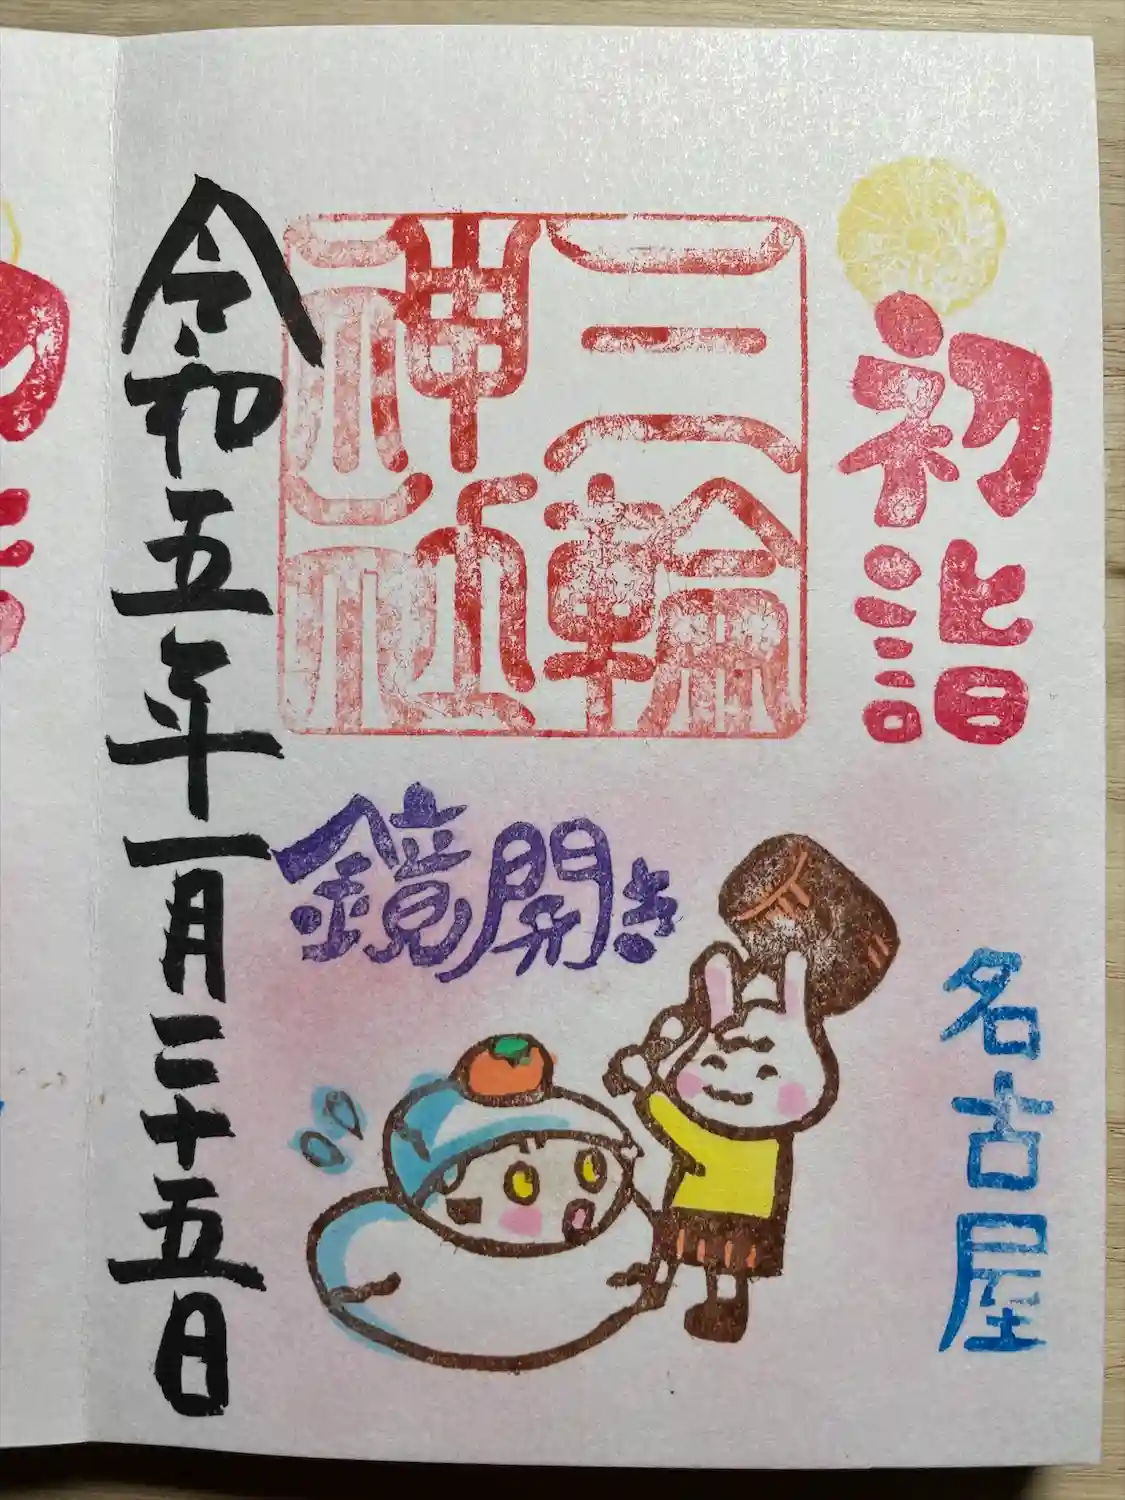 初詣
名古屋
三輪
神社
鏡開き
令和五年一月二十五日